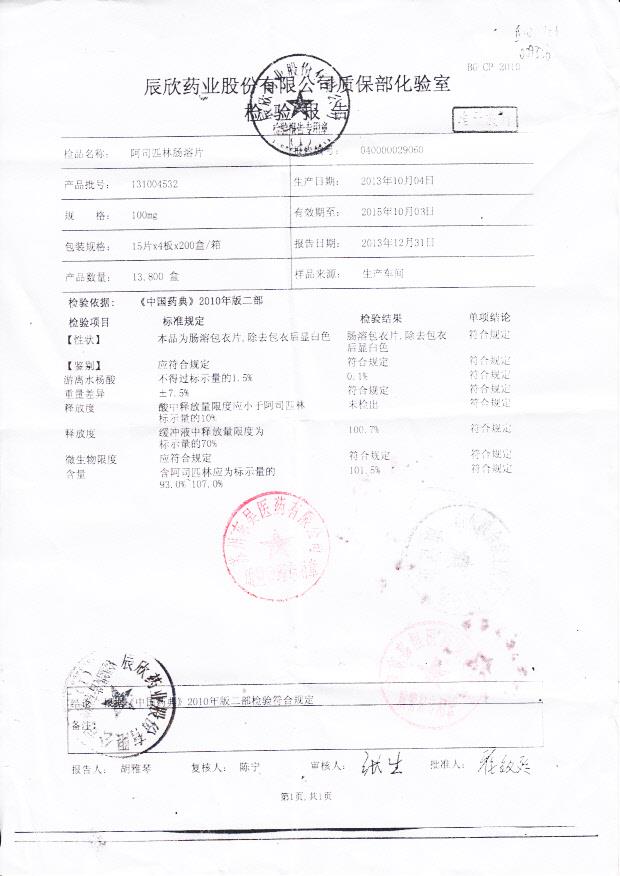 BG-CP-2010
辰欣药业股份有限公司质保部化验室
检 验 报 告
检验报告专用章
（1）
检品名称： 阿司匹林肠溶片 040000029060
产品批号： 131004532 生产日期： 2013年10月04日
规 格： 100mg 有效期至： 2015年10月03日
包装规格： 15片x4板x200盒/箱 报告日期： 2013年12月31日
产品数量： 13,800 盒 样品来源： 生产车间
检验依据： 《中国药典》2010年版二部
检验项目 标准规定 检验结果 单项结论
【性状】 本品为肠溶包衣片,除去包衣后显白色 肠溶包衣片,除去包衣 符合规定
后显白色
【鉴别】 应符合规定 符合规定 符合规定
游离水杨酸 不得过标示量的1.5% 0.1% 符合规定
重量差异 ±7.5% 符合规定 符合规定
释放度 酸中释放量限度应小于阿司匹林 未检出 符合规定
标示量的10%
释放度 缓冲液中释放量限度为 100.7% 符合规定
标示量的70%
微生物限度 应符合规定 符合规定 符合规定
含量 含阿司匹林应为标示量的 101.5% 符合规定
93.0%~107.0%
医药有限公司
辰欣药业股份有限公
《中国药典》2010年版二部检验符合规定
备注：
报告人： 胡雅琴 复核人： 陈宁 审核人： 批准人：
第1页,共1页